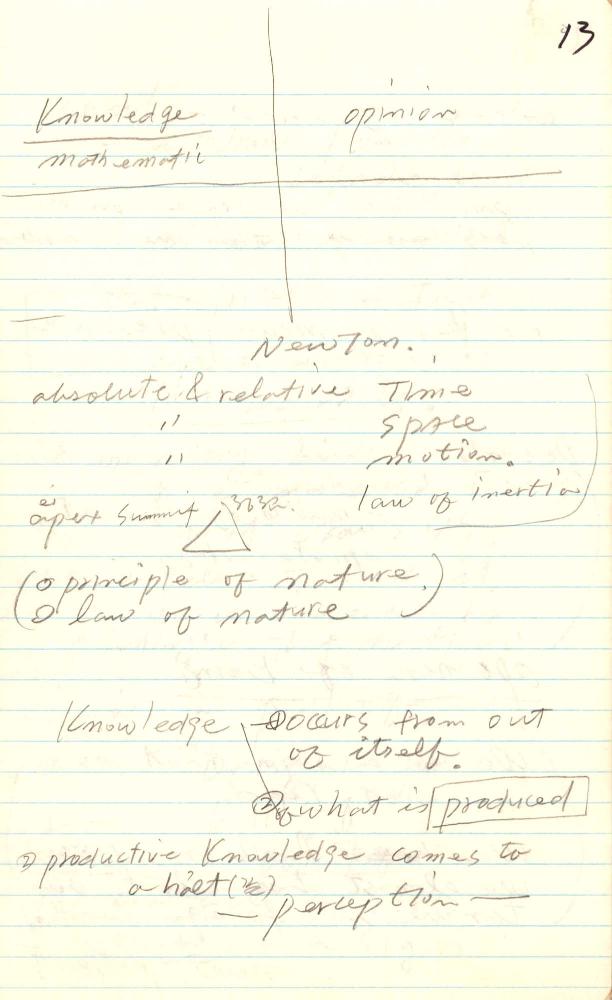 13
Knowledge opinion
mathematic
Newton.
absolute & relative Time
" space
" motion.
apex summit law of inertia
(o principle of nature.)
o law of nature
Knowledge ① occurs from out
of itself.
② of what is produced
② productive Knowledge comes to
a halt
— perception —